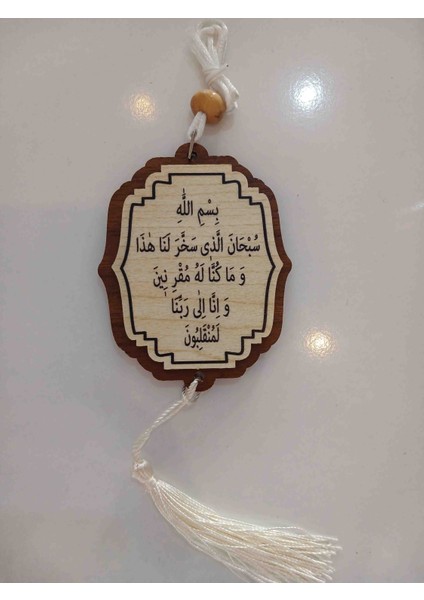 بِسْمِ اللّٰهِ
سُبْحَانَ الَّذٖى سَخَّرَ لَنَا هٰذَا
وَ مَا كُنَّا لَهُ مُقْرِ نٖينَ
وَ اِنَّا اِلٰى رَبِّنَا
لَمُنْقَلِبُونَ